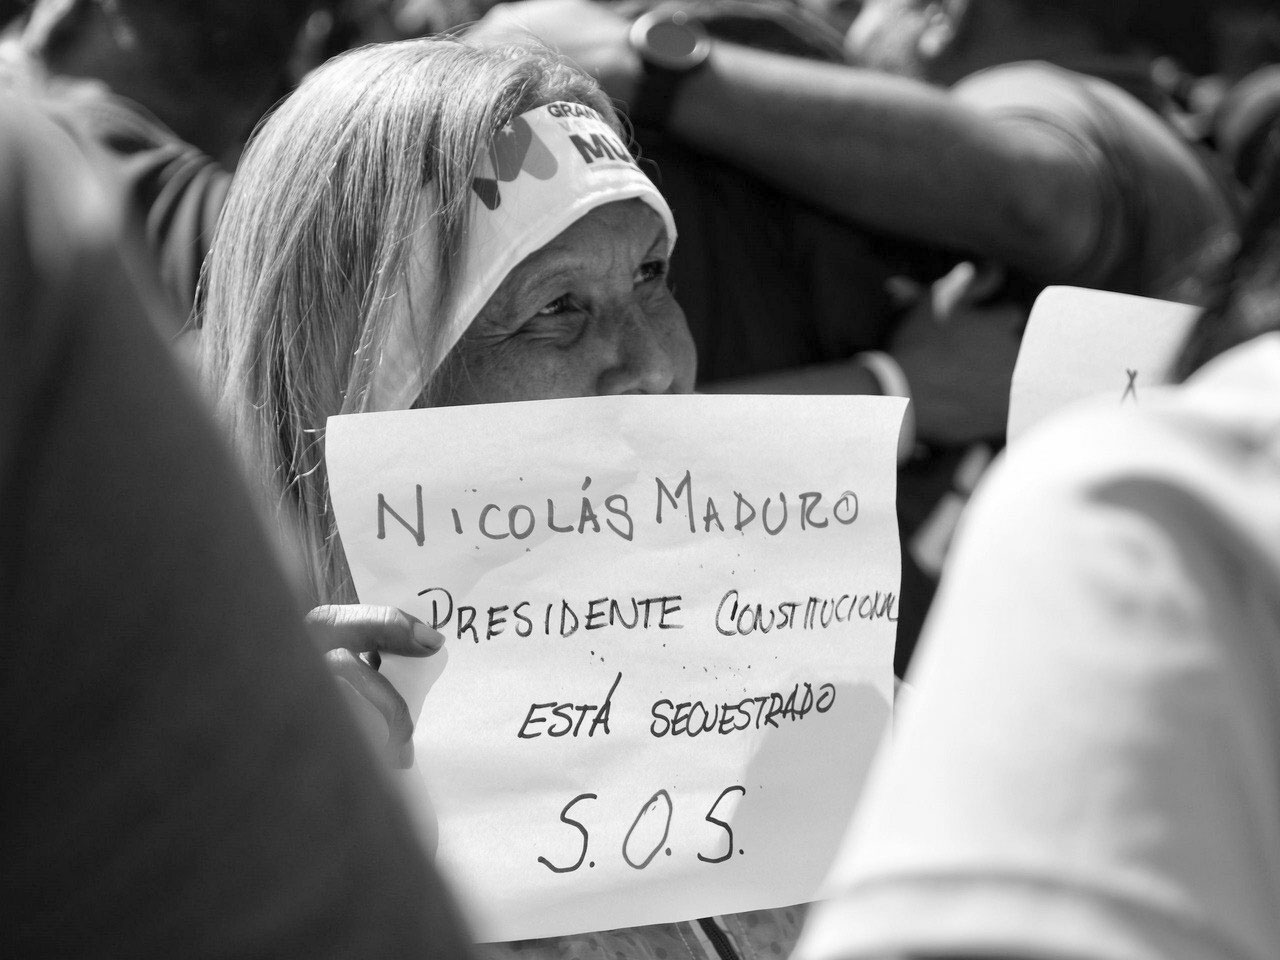 GRAN
MU
NICOLÁS MADURO
PRESIDENTE CONSTITUCIONAL
ESTÁ SECUESTRADO
S.O.S.
X